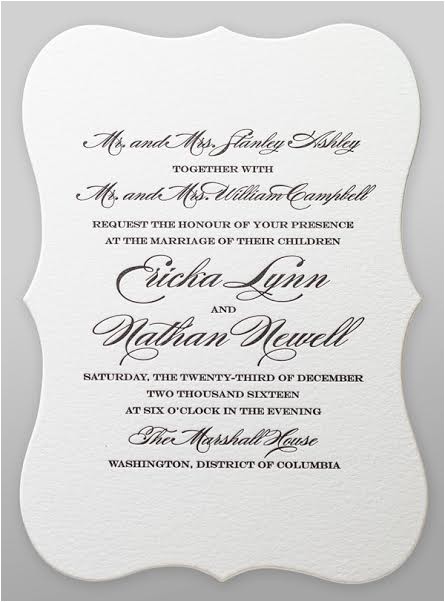 Mr. and Mrs. Stanley Ashley
TOGETHER WITH
Mr. and Mrs. William Campbell
REQUEST THE HONOUR OF YOUR PRESENCE
AT THE MARRIAGE OF THEIR CHILDREN
Ericka Lynn
AND
Nathan Newell
SATURDAY, THE TWENTY-THIRD OF DECEMBER
TWO THOUSAND SIXTEEN
AT SIX O'CLOCK IN THE EVENING
The Marshall House
WASHINGTON, DISTRICT OF COLUMBIA